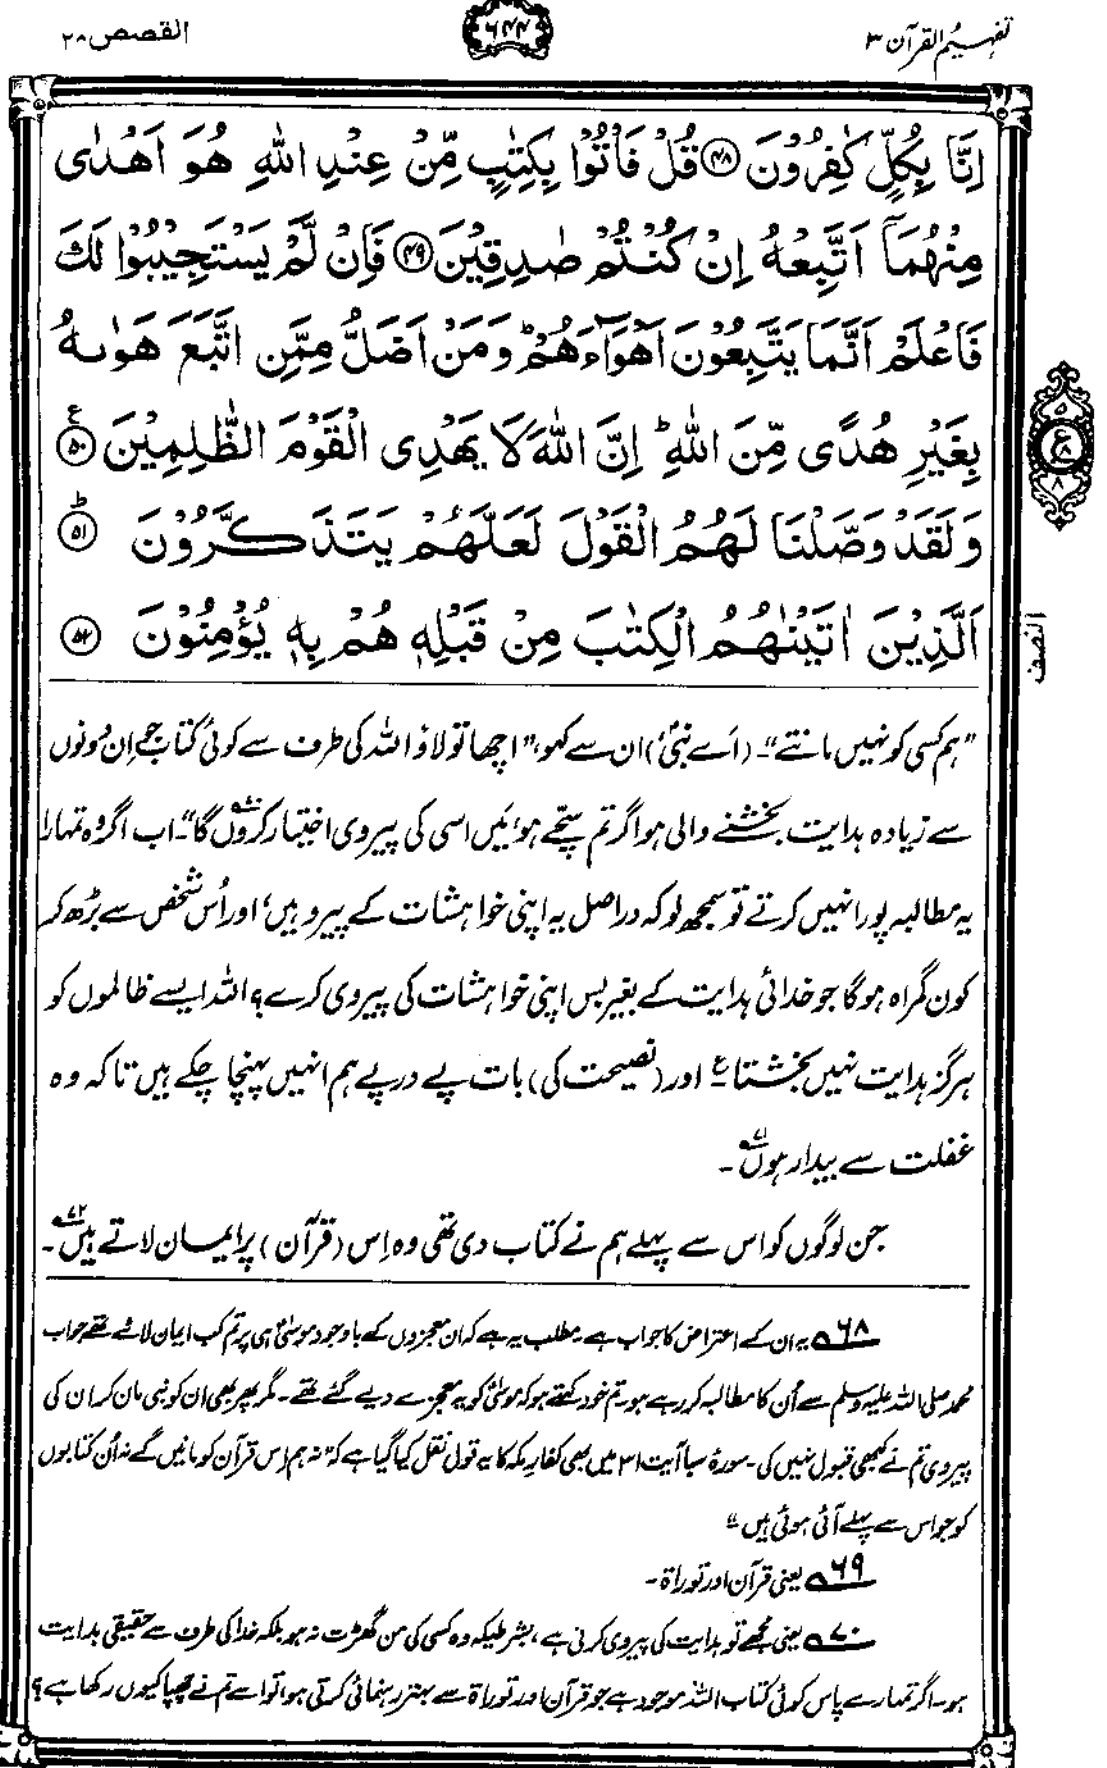 تفہیم القرآن ۳
۶۴۴
القصص ۲۸
اِنَّا بِكُلٍّ كٰفِرُوْنَ ﴿۴۸﴾ قُلْ فَاْتُوْا بِكِتٰبٍ مِّنْ عِنْدِ اللّٰهِ هُوَ اَهْدٰى
مِنْهُمَآ اَتَّبِعْهُ اِنْ كُنْتُمْ صٰدِقِيْنَ ﴿۴۹﴾ فَاِنْ لَّمْ يَسْتَجِيْبُوْا لَكَ
فَاعْلَمْ اَنَّمَا يَتَّبِعُوْنَ اَهْوَآءَهُمْ ؕ وَمَنْ اَضَلُّ مِمَّنِ اتَّبَعَ هَوٰىهُ
بِغَيْرِ هُدًى مِّنَ اللّٰهِ ؕ اِنَّ اللّٰهَ لَا يَهْدِى الْقَوْمَ الظّٰلِمِيْنَ ﴿۵۰﴾ ع
۵ ع ۸ ۸
وَلَقَدْ وَصَّلْنَا لَهُمُ الْقَوْلَ لَعَلَّهُمْ يَتَذَكَّرُوْنَ ﴿۵۱﴾ ؕ
اَلَّذِيْنَ اٰتَيْنٰهُمُ الْكِتٰبَ مِنْ قَبْلِهٖ هُمْ بِهٖ يُؤْمِنُوْنَ ﴿۵۲﴾
النصف
”ہم کسی کو نہیں مانتے“۔ (اَے نبیؐ) ان سے کہو، ”اچھا تو لاؤ اللہ کی طرف سے کوئی کتاب جو اِن دونوں
سے زیادہ ہدایت بخشنے والی ہو اگر تم سچّے ہو، مَیں اسی کی پیروی اختیار کروں۷۰ گا“۔ اب اگر وہ تمہارا
یہ مطالبہ پورا نہیں کرتے تو سمجھ لو کہ دراصل یہ اپنی خواہشات کے پیرو ہیں، اور اُس شخص سے بڑھ کر
کون گمراہ ہوگا جو خدائی ہدایت کے بغیر بس اپنی خواہشات کی پیروی کرے؟ اللہ ایسے ظالموں کو
ہرگز ہدایت نہیں بخشتا ؏ اور (نصیحت کی) بات پے در پے ہم انہیں پہنچا چکے ہیں تاکہ وہ
غفلت سے بیدار ہوں۷۱۔
جن لوگوں کو اس سے پہلے ہم نے کتاب دی تھی وہ اِس (قرآن) پر ایمان لاتے ہیں۷۲۔
۶۸ یہ ان کے اعتراض کا جواب ہے۔ مطلب یہ ہے کہ ان معجزوں کے باوجود موسیٰؑ ہی پر تم کب ایمان لائے تھے جو اب
محمد صلی اللہ علیہ وسلم سے اُن کا مطالبہ کر رہے ہو۔ تم خود کہتے ہو کہ موسیٰؑ کو یہ معجزے دیے گئے تھے۔ مگر پھر بھی ان کو نبی مان کر ان کی
پیروی تم نے کبھی قبول نہیں کی۔ سورۂ سبا آیت ۳۱ میں بھی کفارِ مکہ کا یہ قول نقل کیا گیا ہے کہ ”نہ ہم اِس قرآن کو مانیں گے نہ اُن کتابوں
کو جو اس سے پہلے آئی ہوئی ہیں“
۶۹ یعنی قرآن اور توراۃ۔
۷۰ یعنی مجھے تو ہدایت کی پیروی کرنی ہے، بشرطیکہ وہ کسی کی من گھڑت نہ ہو بلکہ خدا کی طرف سے حقیقی ہدایت
ہو۔ اگر تمہارے پاس کوئی کتاب اللہ موجود ہے جو قرآن اور توراۃ سے بہتر رہنمائی کرتی ہو تو اسے تم نے چھپا کیوں رکھا ہے؟